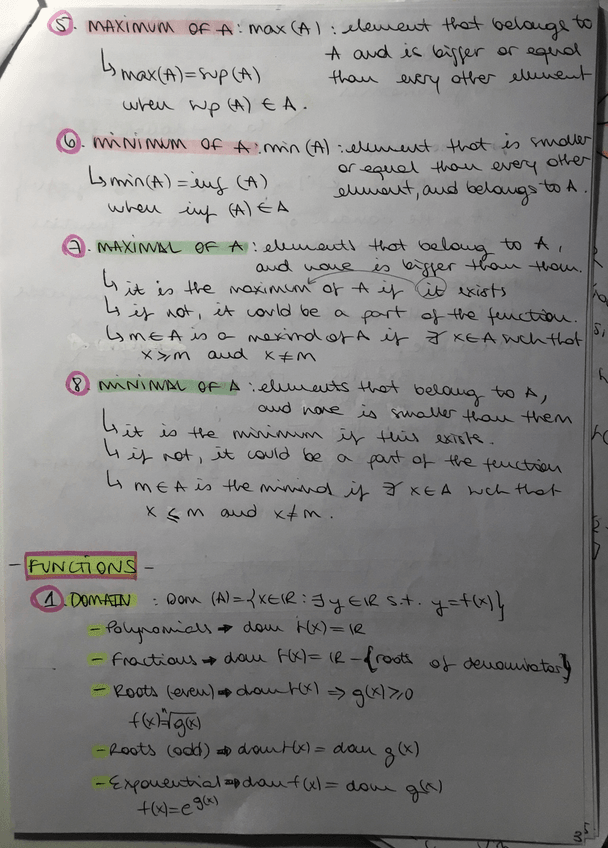 5. MAXIMUM OF A : max (A) : element that belongs to
A and is bigger or equal
than every other element
↳ max(A) = sup (A)
when sup (A) ∈ A.
6. MINIMUM OF A : min (A) : element that is smaller
or equal than every other
element, and belongs to A.
↳ min(A) = inf (A)
when inf (A) ∈ A
7. MAXIMAL OF A : elements that belong to A,
and none is bigger than them.
↳ it is the maximum of A if it exists
↳ if not, it could be a part of the function.
↳ m ∈ A is a maximal of A if ∄ x ∈ A such that
x ≥ m and x ≠ m
8. MINIMAL OF A : elements that belong to A,
and none is smaller than them
↳ it is the minimum if this exists.
↳ if not, it could be a part of the function
↳ m ∈ A is the minimal if ∄ x ∈ A such that
x ≤ m and x ≠ m.
- FUNCTIONS -
1. DOMAIN : Dom (A) = {x ∈ IR : ∃ y ∈ IR s.t. y = f(x)}
- Polynomials → dom f(x) = IR
- Fractions → dom f(x) = IR - {roots of denominator}
- Roots (even) ⇒ dom f(x) ⇒ g(x) ≥ 0
f(x) = ⁿ√g(x)
- Roots (odd) ⇒ dom f(x) = dom g(x)
- Exponential ⇒ dom f(x) = dom g(x)
f(x) = e^g(x)